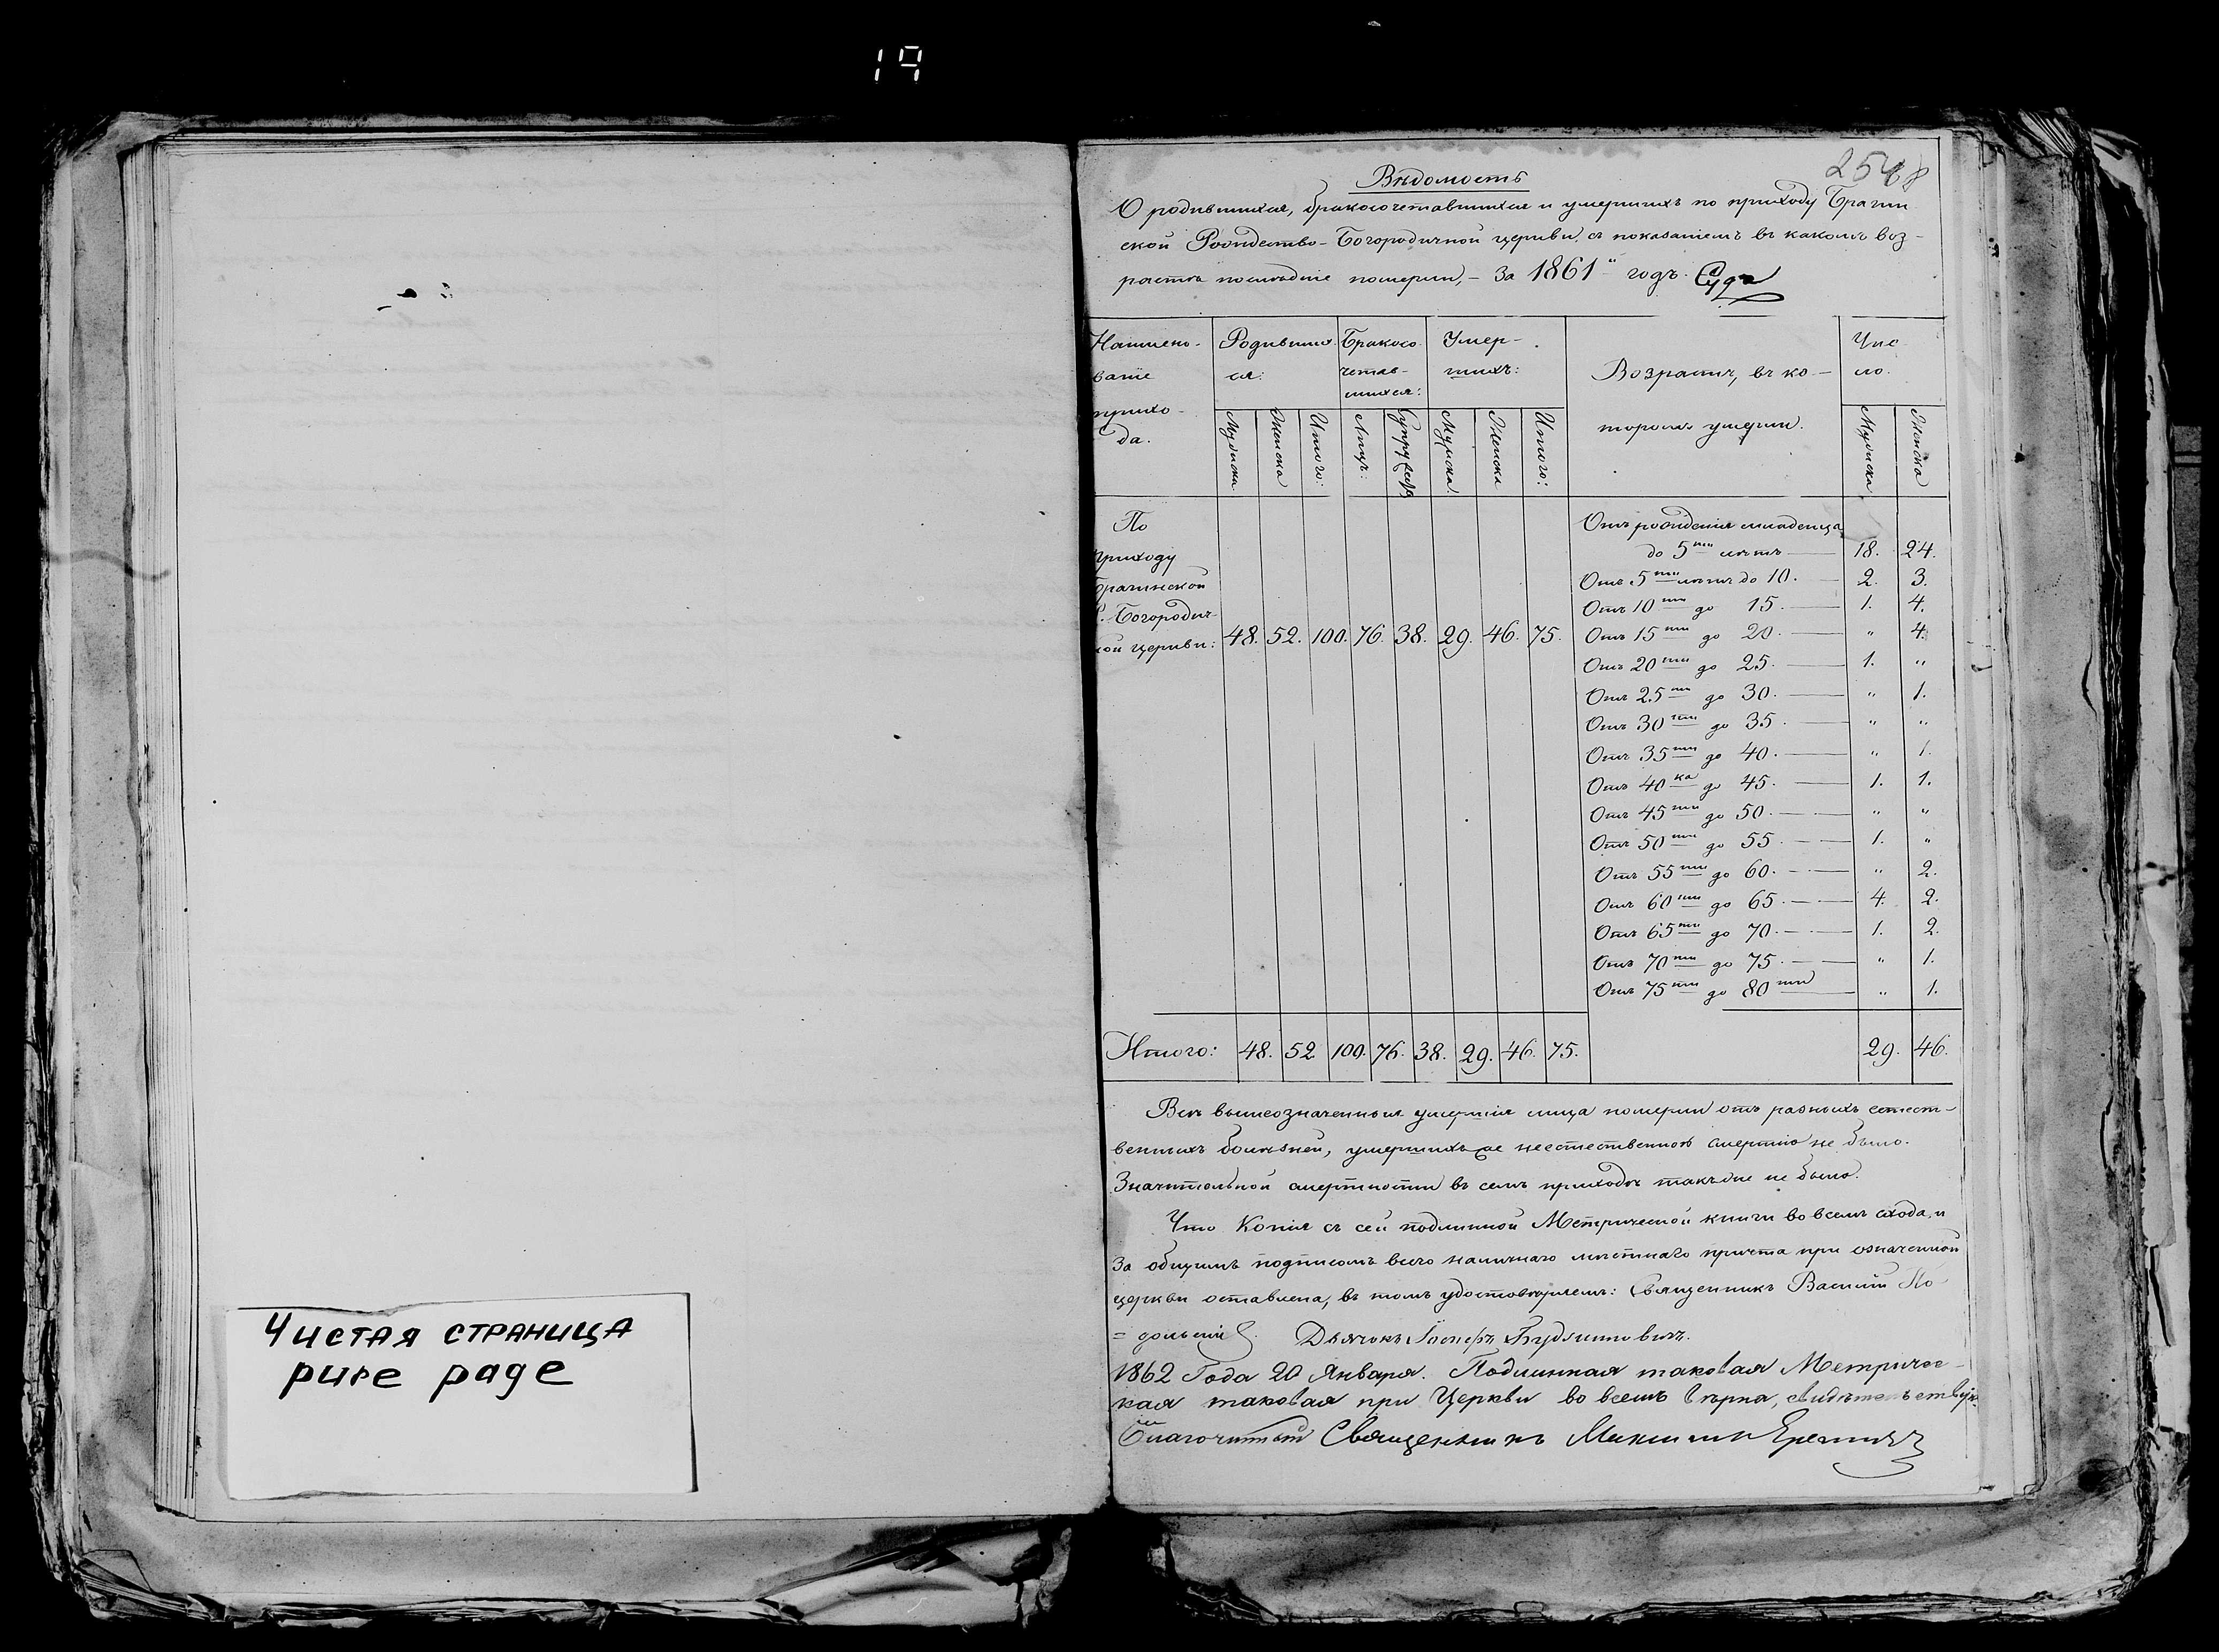 19
Чистая страница
pure page
Вѣдомость
О родившихся, бракосочетавшихся и умершихъ по приходу Брагин
ской Рождество-Богородичной церкви, съ показаніемъ въ какомъ воз-
растѣ послѣдніе померли, - За 1861й годъ.
Наимено-
ваніе
прихо-
да.
Родивших
ся:
Бракосо
четав-
шихся:
Умер-
шихъ:
Возрастъ, въ ко-
торомъ умерли.
Чис
ло.
Мужска Женска Итого: Лицъ: Супружествъ Мужска. Женска Итого: Мужска Женска
По
приходу
Брагинской
Р. Богородич
ной церкви: 48. 52. 100. 76. 38. 29. 46. 75.
Отъ рожденія младенца
до 5ти лѣтъ 18. 24.
Отъ 5ти лѣтъ до 10. 2. 3.
Отъ 10ти до 15. 1. 4.
Отъ 15ти до 20. " 4.
Отъ 20ти до 25. 1. "
Отъ 25ти до 30. " 1.
Отъ 30ти до 35. " "
Отъ 35ти до 40. " 1.
Отъ 40ка до 45. 1. 1.
Отъ 45ти до 50. " "
Отъ 50ти до 55. 1. "
Отъ 55ти до 60. " 2.
Отъ 60ти до 65. 4. 2.
Отъ 65ти до 70. 1. 2.
Отъ 70ти до 75. " 1.
Отъ 75ти до 80ти " 1.
Итого: 48. 52 100. 76. 38. 29. 46. 75. 29. 46.
Всѣ вышеозначенныя умершія лица померли отъ разныхъ естест-
венныхъ болѣзней, умершихъ же неестественною смертію не было.
Значительной смертности въ семъ приходѣ также не было.
Что Копія съ сей подлинной Метрической книги во всемъ сходна, и
За общимъ подписомъ всего наличнаго мѣстнаго причта при означенной
церкви оставлена, въ томъ удостовѣряемъ: Священникъ Василій По
= дольскій. Дьячокъ Іосифъ
1862 Года 20 Января. Подлинная таковая Метричес-
кая таковая при Церкви во всемъ вѣрна, свидѣтельствую.
Благочинный Священникъ